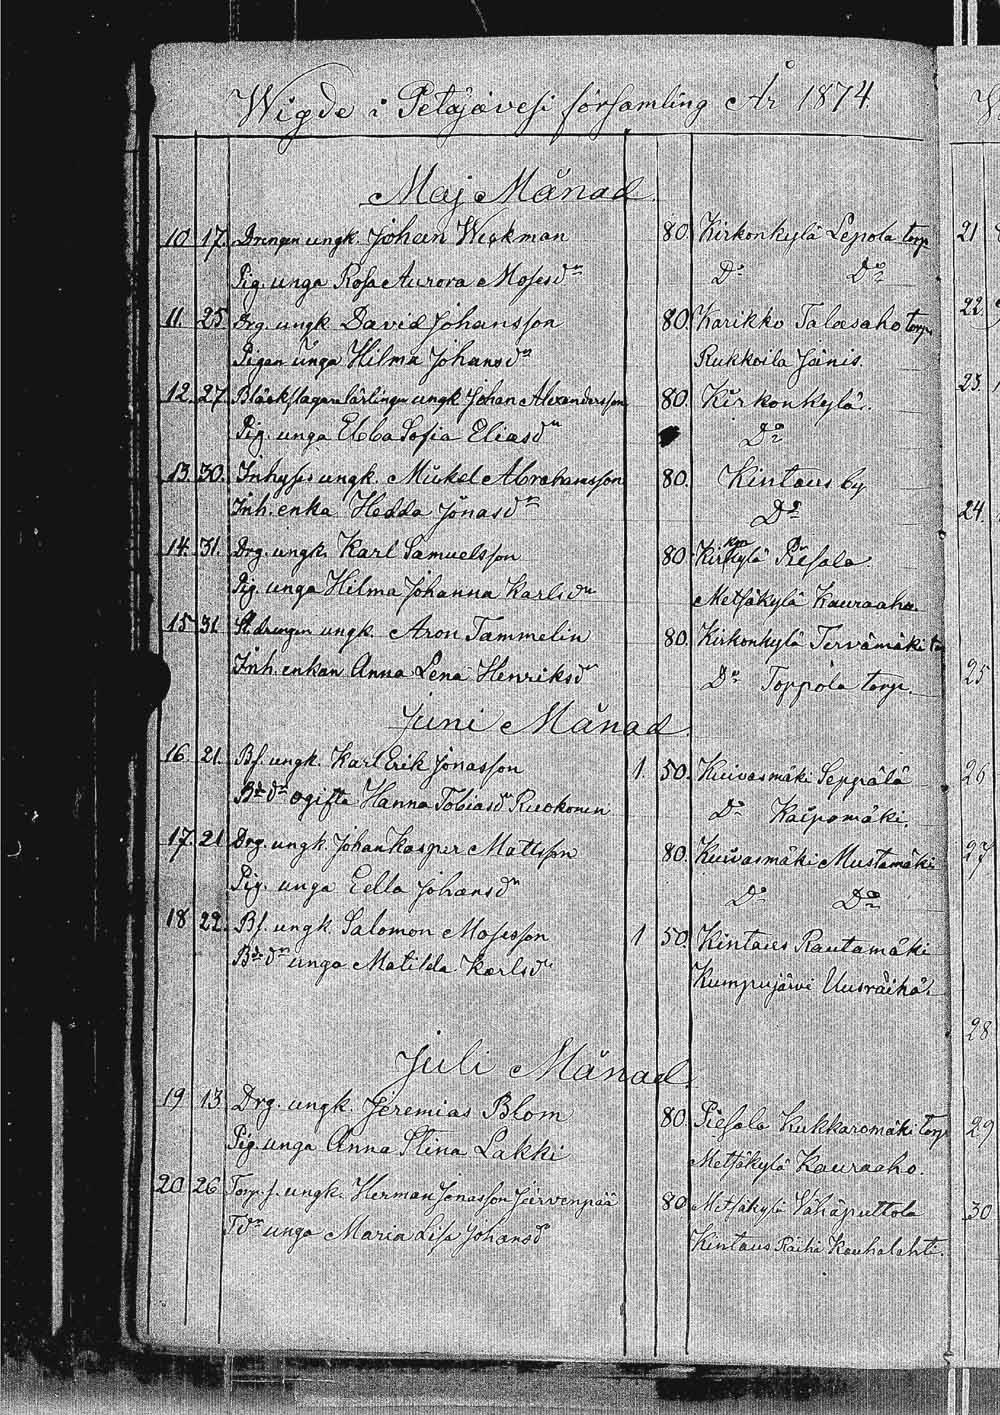 Wigde i Petäjävesi församling År 1874
Maj Månad.
10 17. Drengen ungk. Johan Wickman 80. Kirkonkylä Lepola torp
Pig. unga Rosa Aurora Mosesdr Do Do
11. 25. Drg. ungk. David Johansson 80. Karikko Talasaho torp.
Pigan unga Hilma Johansdr Kukkoila Jänis.
12. 27. Bläckslagare lärlingen ungk. Johan Alexandersson 80. Kirkonkylä.
Pig. unga Ebba Sofia Eliasdr Do
13. 30. Inhyses ungk. Mickel Abrahamsson 80. Kintaus by
Inh. enka Hedda Jonasdr Do
14. 31. Drg. ungk. Karl Samuelsson 80. Kirkonkylä Piesala.
Pig. unga Hilma Johanna Karlsdr Metsäkylä Kauraaho.
15 31. drengen ungk. Aron Tammelin 80. Kirkonkylä Tervämäki
Inh. enkan Anna Lena Henriksdr Do Toppola torp.
Juni Månad.
16. 21. Bs. ungk. Karl Erik Jonasson 1. 50. Kuivasmäki Seppälä
Bdedr ogifta Hanna Tobiasdr Ruokonen Do Kaipomäki.
17. 21 Drg. ungk. Johan Kasper Mattsson 80. Kuivasmäki Mustamäki
Pig. unga Eella Johansdr Do Do
18 22. Bs. ungk. Salomon Mosesson 1 50. Kintaus Rautamäki
Bdedr unga Matilda Karlsdr Kumpujärvi Uusräihä.
Juli Månad.
19 13. Drg. ungk. Jeremias Blom 80. Piesala Kukkaromäki torp
Pig. unga Anna Stina Lakki Metsäkylä Kauraaho.
20 26. Torp. s. ungk. Herman Jonasson Järvenpää 80. Metsäkylä Vähäputtola
Tdr unga Maria Lisa Johansdr Kintaus Räihä Kauhalahti.
21
22.
23.
24.
25
26
27
28
29
30